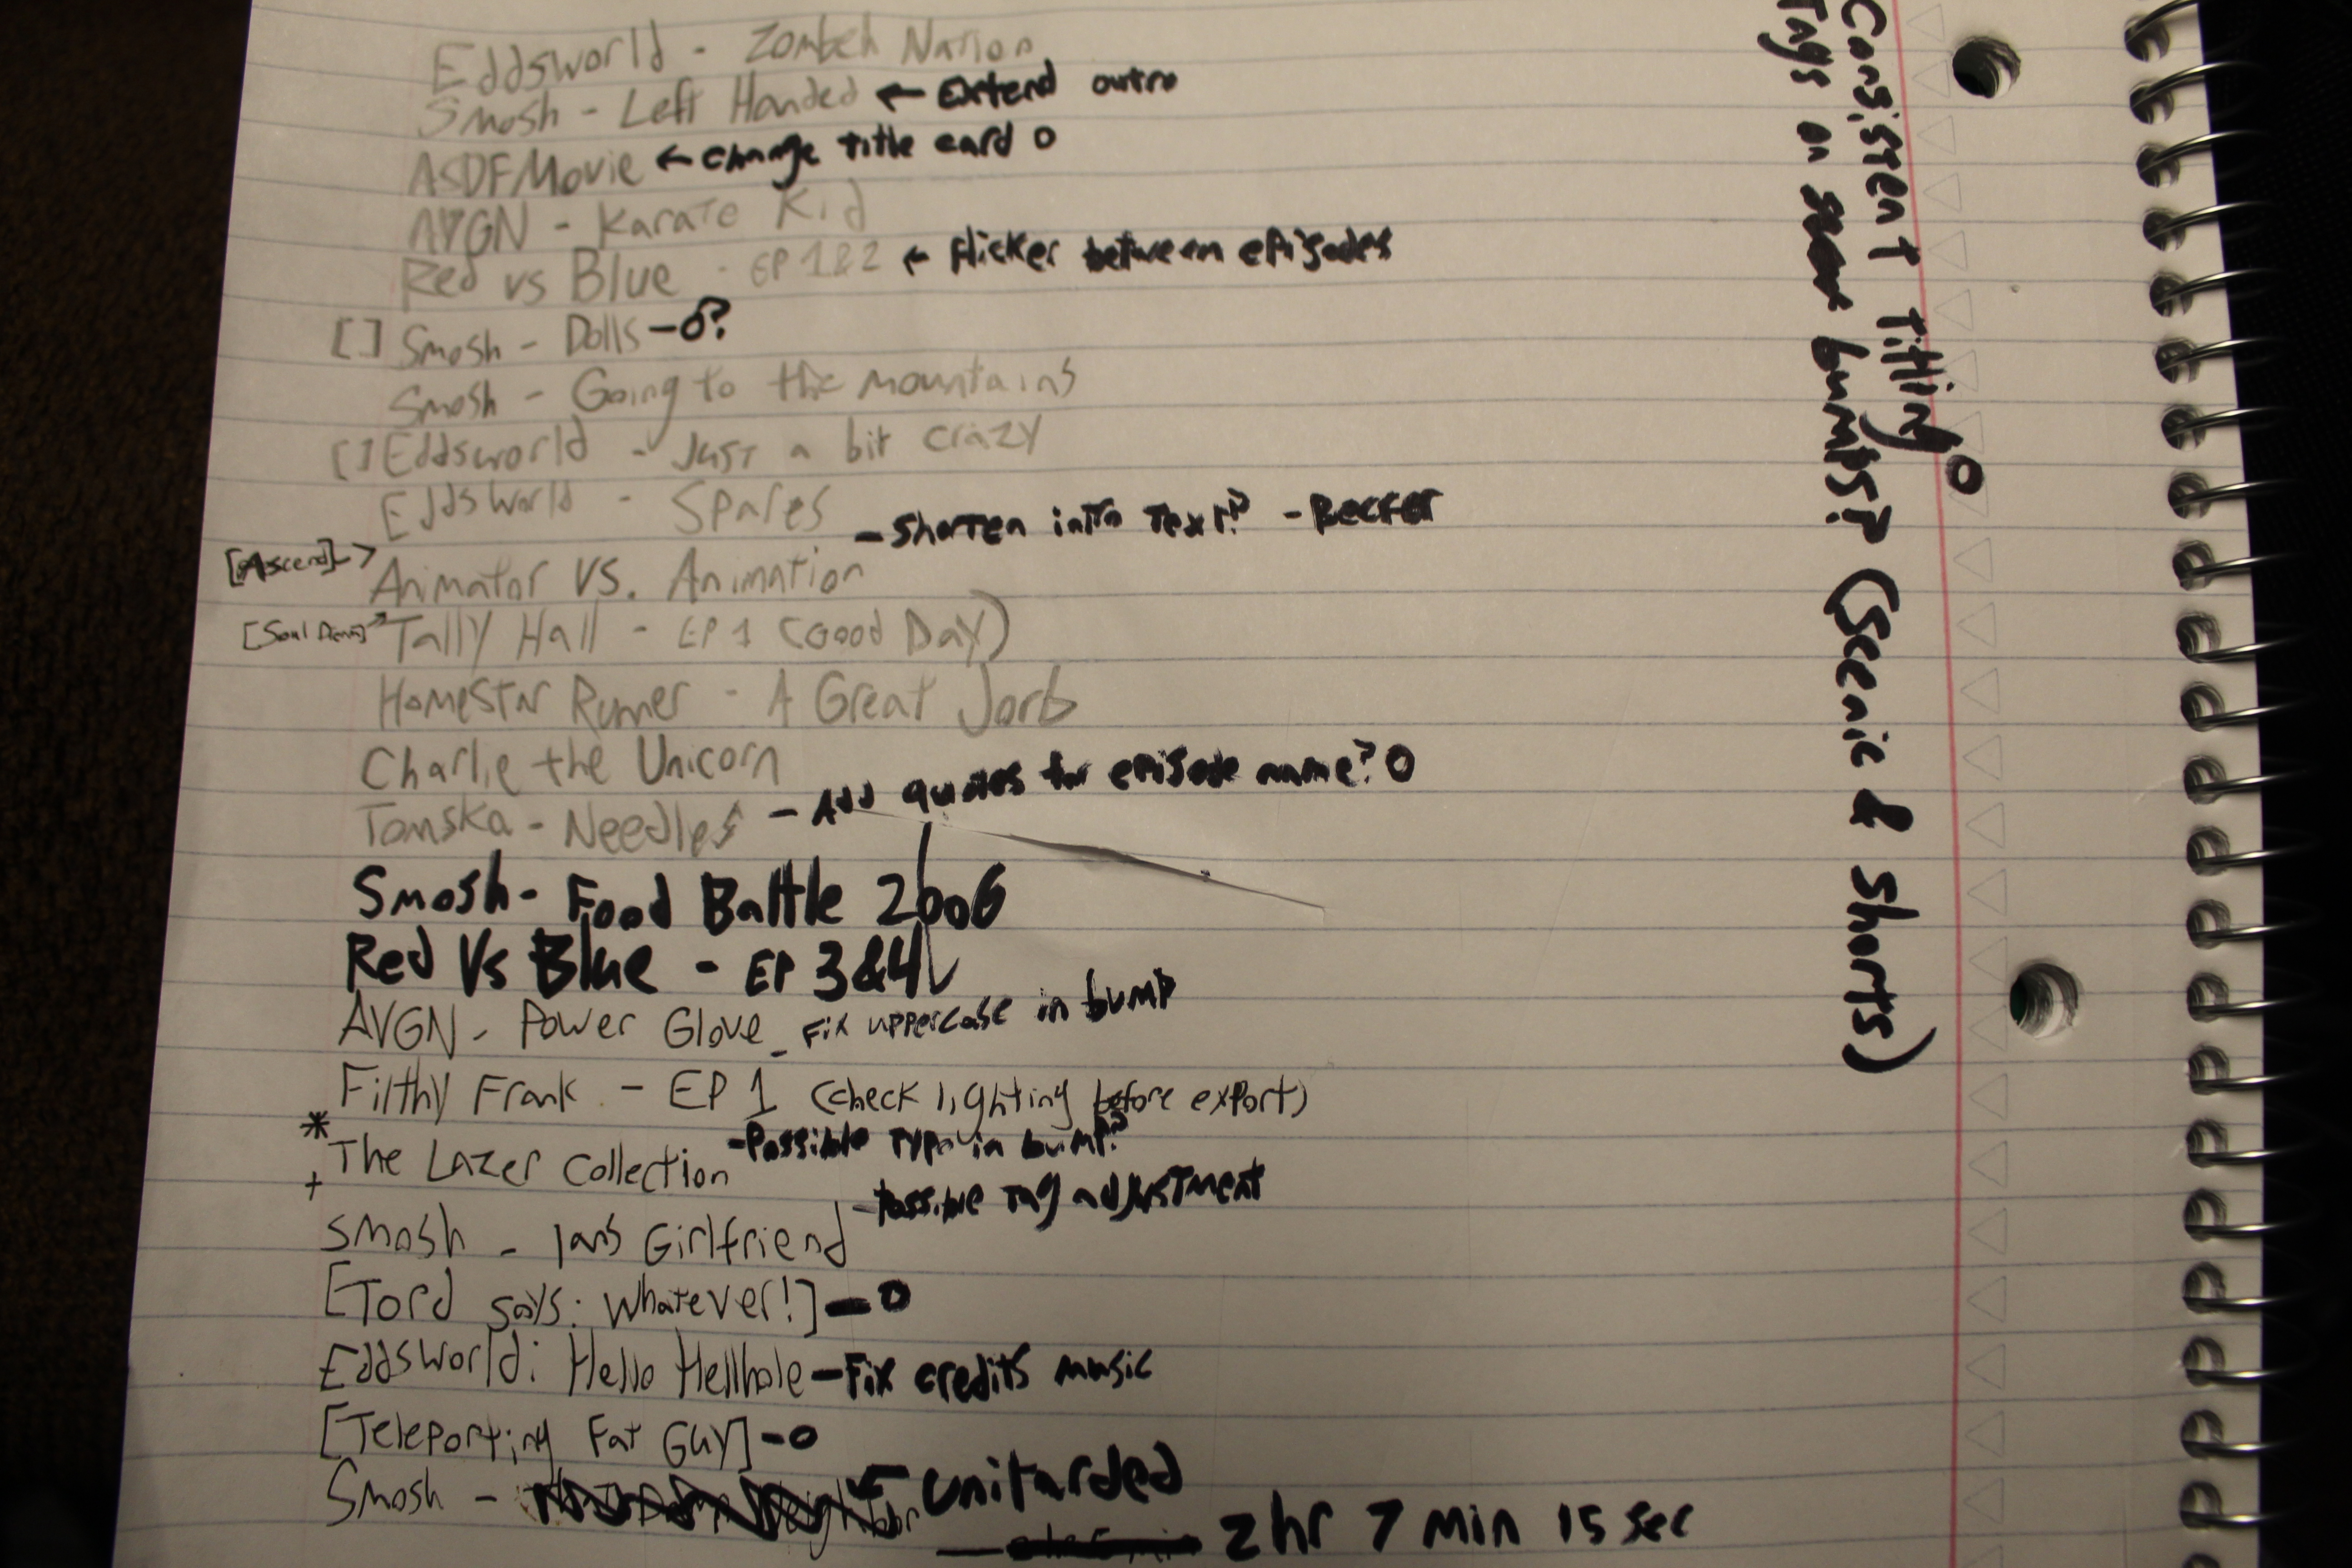 Eddsworld - Zombeh Nation
Smosh - Left Handed ← Extend outro
ASDFMovie ← change title card O
AVGN - Karate Kid
Red vs Blue - EP 1&2 ← flicker between episodes
[ ] Smosh - Dolls - O?
Smosh - Going to the mountains
[ ] Eddsworld - Just a bit crazy
Eddsworld - Spares
[Ascend] -> Animator VS. Animation - Shorten intro Text?
[Soul →Tally Hall - EP 1 (Good Day)
Homestar Runner - A Great Jorb
Charlie the Unicorn
Tomska - Needles - Add quotes for episode name? O
Smosh - Food Battle 2006
Red Vs Blue - EP 3&4
AVGN - Power Glove - Fix uppercase in bump
Filthy Frank - EP 1 (check lighting before export)
* The Lazer Collection - Possible Typo in bump?
+
Smosh - Ians Girlfriend - Possible Tag adjustment
[Tord says: Whatever!] - O
Eddsworld: Hello Hellhole - Fix credits music
[Teleporting Fat Guy] - O
Smosh - ← Unitarded
2 hr 7 min 15 sec
Consistent titling O
Tags on bumps? (Scenic & Shorts)